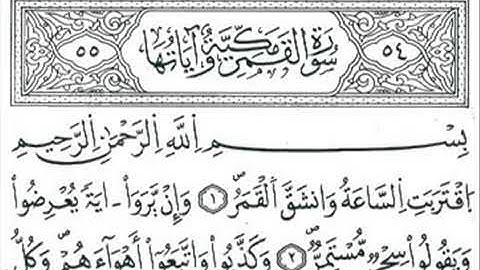 ٥٤ سُورَةُ القَمَرِ مَكِّيَّةٌ وَآيَاتُهَا ٥٥
بِسْمِ اِللَّهِ اِلرَّحْمَٰنِ اِلرَّحِيمِ
اِقْتَرَبَتِ اِلسَّاعَةُ وَانشَقَّ اَلْقَمَرُ ١ وَإِنْ يَّرَوَاْ ـ ايَةً يُعْرِضُواْ
وَيَقُولُواْ سِحْرٌ مُّسْتَمِرٌّ ٢ وَكَذَّبُواْ وَاتَّبَعُوٓاْ أَهْوَآءَهُمْ وَكُلُّ